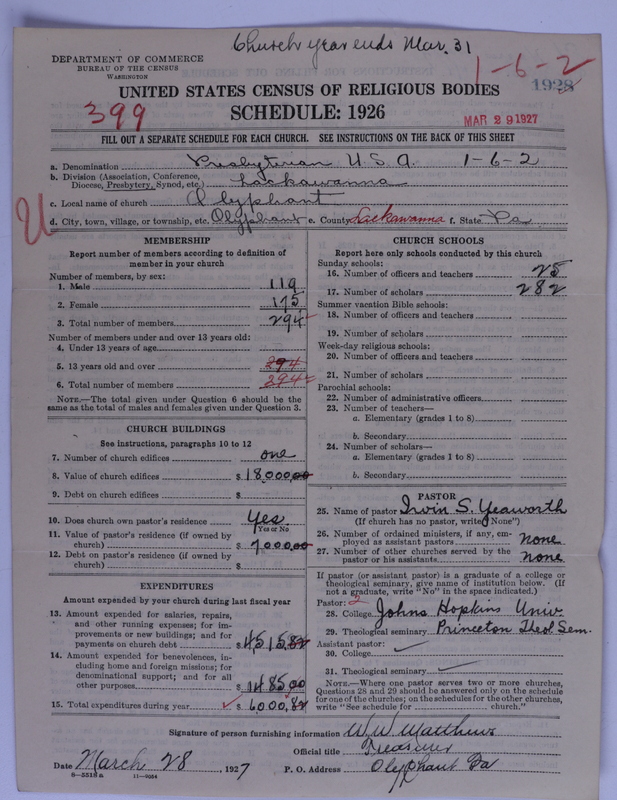 Church year ends Mar. 31
DEPARTMENT OF COMMERCE
BUREAU OF THE CENSUS
WASHINGTON
1-6-2
1928
UNITED STATES CENSUS OF RELIGIOUS BODIES
399
SCHEDULE: 1926
MAR 29 1927
FILL OUT A SEPARATE SCHEDULE FOR EACH CHURCH. SEE INSTRUCTIONS ON THE BACK OF THIS SHEET
a. Denomination Presbyterian U.S.A. 1-6-2
b. Division (Association, Conference, Diocese, Presbytery, Synod, etc.) Lackawanna
c. Local name of church Olyphant
d. City, town, village, or township, etc. Olyphant e. County Lackawanna f. State Pa
U
MEMBERSHIP
Report number of members according to definition of
member in your church
Number of members, by sex:
1. Male 119
2. Female 175
3. Total number of members 294
Number of members under and over 13 years old:
4. Under 13 years of age
5. 13 years old and over 294
6. Total number of members 294
NOTE.—The total given under Question 6 should be the
same as the total of males and females given under Question 3.
CHURCH BUILDINGS
See instructions, paragraphs 10 to 12
7. Number of church edifices one
8. Value of church edifices $ 18,000.00
9. Debt on church edifices $
10. Does church own pastor's residence Yes.
Yes or No
11. Value of pastor's residence (if owned by
church) $ 7000.00
12. Debt on pastor's residence (if owned by
church) $
EXPENDITURES
Amount expended by your church during last fiscal year
13. Amount expended for salaries, repairs,
and other running expenses; for im-
provements or new buildings; and for
payments on church debt $ 4,515.82
14. Amount expended for benevolences, in-
cluding home and foreign missions; for
denominational support; and for all
other purposes $ 1485.00
15. Total expenditures during year $ 6,000.82
CHURCH SCHOOLS
Report here only schools conducted by this church
Sunday schools:
16. Number of officers and teachers 25
17. Number of scholars 282
Summer vacation Bible schools:
18. Number of officers and teachers
19. Number of scholars
Week-day religious schools:
20. Number of officers and teachers
21. Number of scholars
Parochial schools:
22. Number of administrative officers
23. Number of teachers—
a. Elementary (grades 1 to 8)
b. Secondary
24. Number of scholars—
a. Elementary (grades 1 to 8)
b. Secondary
PASTOR
25. Name of pastor Irwin S. Yeaworth
(If church has no pastor, write "None")
26. Number of ordained ministers, if any, em-
ployed as assistant pastors None
27. Number of other churches served by the
pastor or his assistants None
If pastor (or assistant pastor) is a graduate of a college or
theological seminary, give name of institution below. (If
not a graduate, write "No" in the space indicated.)
Pastor: 2
28. College Johns Hopkins Univ.
29. Theological seminary Princeton Theol Sem.
Assistant pastor:
30. College
31. Theological seminary
NOTE.—Where one pastor serves two or more churches,
Questions 28 and 29 should be answered only on the schedule
for one of the churches; on the schedules for the other churches,
write "See schedule for church."
Signature of person furnishing information W. W. Matthews
Official title Treasurer
Date March 28, 1927 P. O. Address Olyphant Pa
8—5518a 11—9054